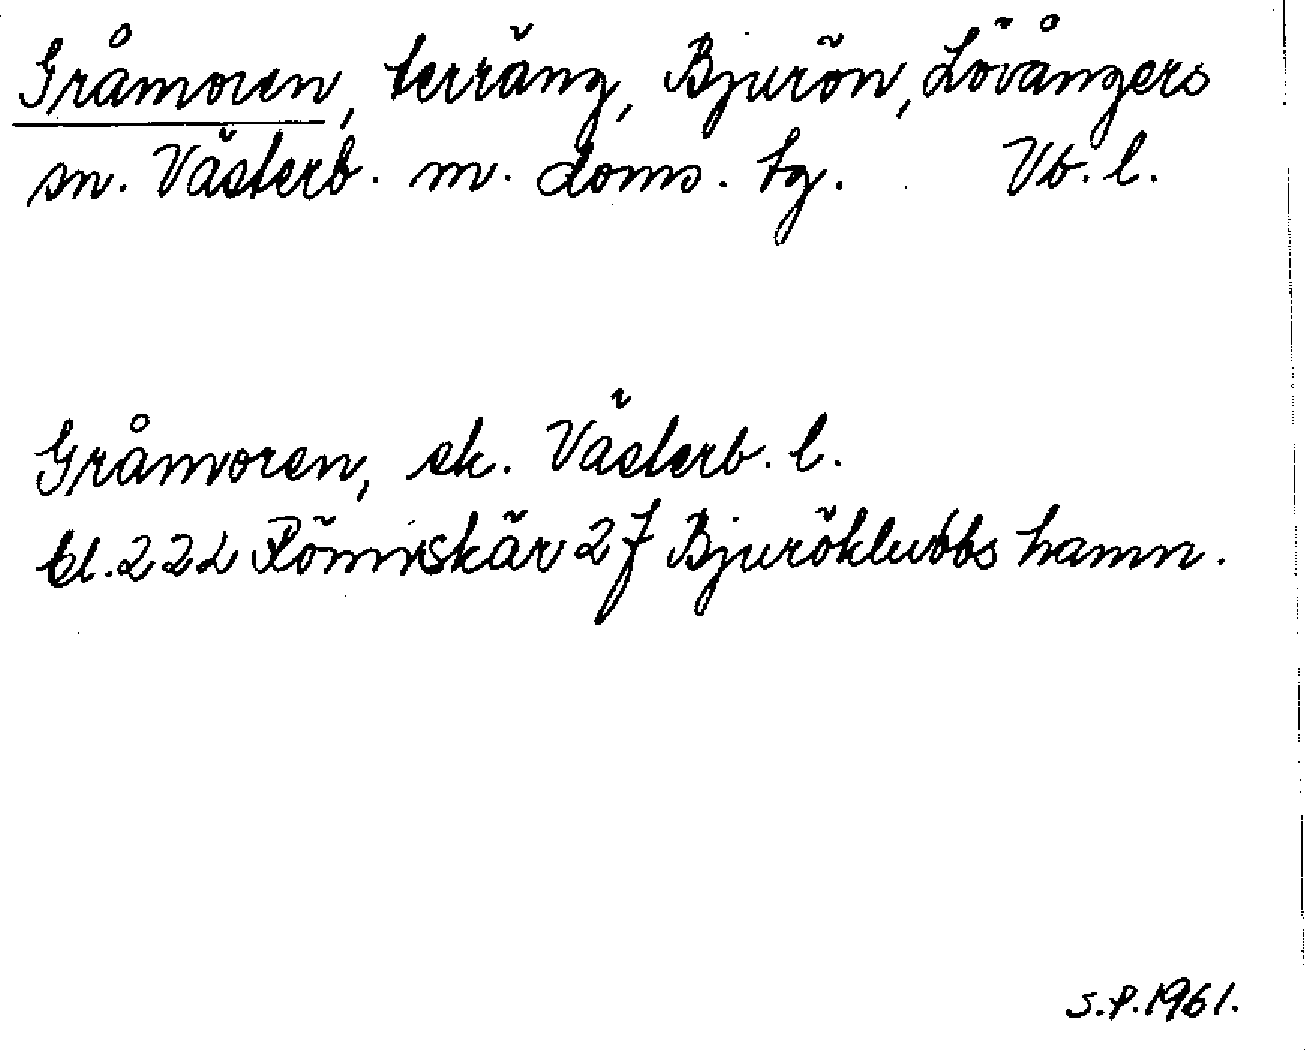 Gråmoren, terräng, Bjurön, Lövångers
sn. Västerb. m. doms. tg. Vb. l.
Gråmoren, ek. Västerb. l.
bl. 222 Römirskär 27 Bjuröklubbs hamn.
S.P. 1961.